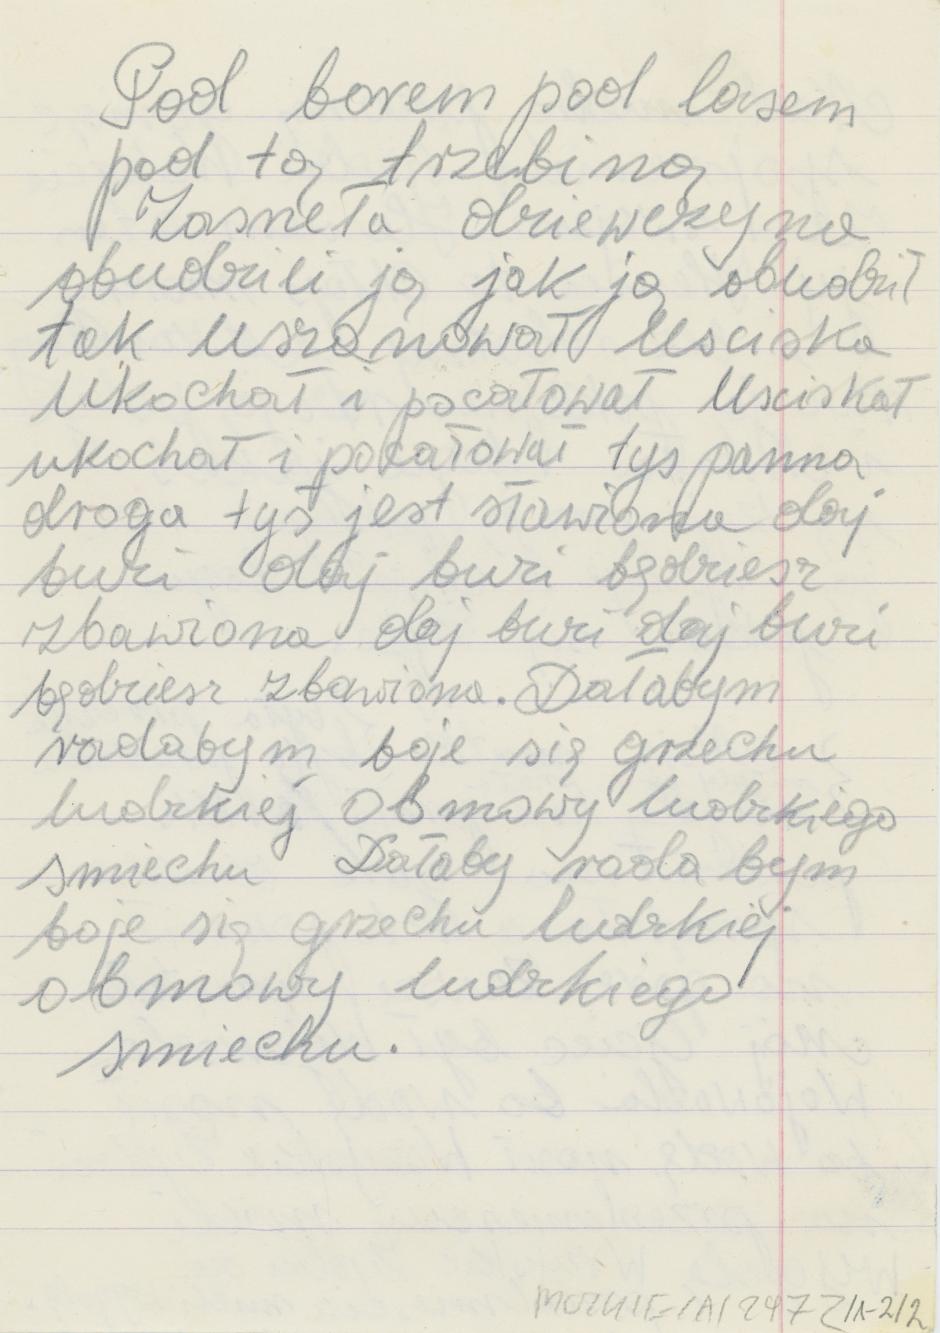 Pod borem pod lasem
pod tą trzebiną
Zasneła dziewczyna
obudzili ją jak ją obudził
tak uszanował Usciska
Ukochał i pocałował Usciskał
ukochał i pocałował tys panna
droga tyś jest sławiona daj
buzi daj buzi będziesz
zbawiona daj buzi daj buzi
będziesz zbawiona. Dałabym
radabym boje się grzechu
ludzkiej obmowy ludzkiego
smiechu Dałaby rada bym
boje się grzechu ludzkiej
obmowy ludzkiego
smiechu.